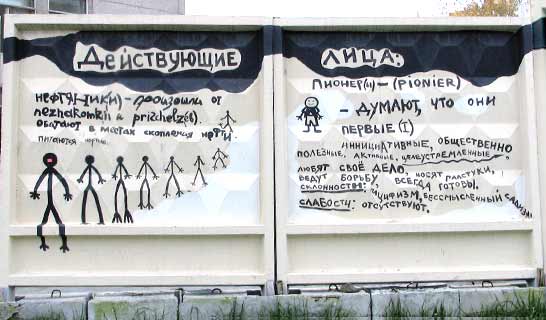 Действующие
лица:
нефтя(ники) - произошли от
neznakomki и prichelzev.
обитают в местах скопления нефти.
питаются нефтью.
пионер(ы) - (pionier)
- думают, что они
первые (I)
инициативные, общественно
полезные, активные, целеустремленные,
любят своё дело, носят галстуки,
ведут борьбу, всегда готовы.
склонности: пацифизм, бессмысленный
слабости: отсутствуют.